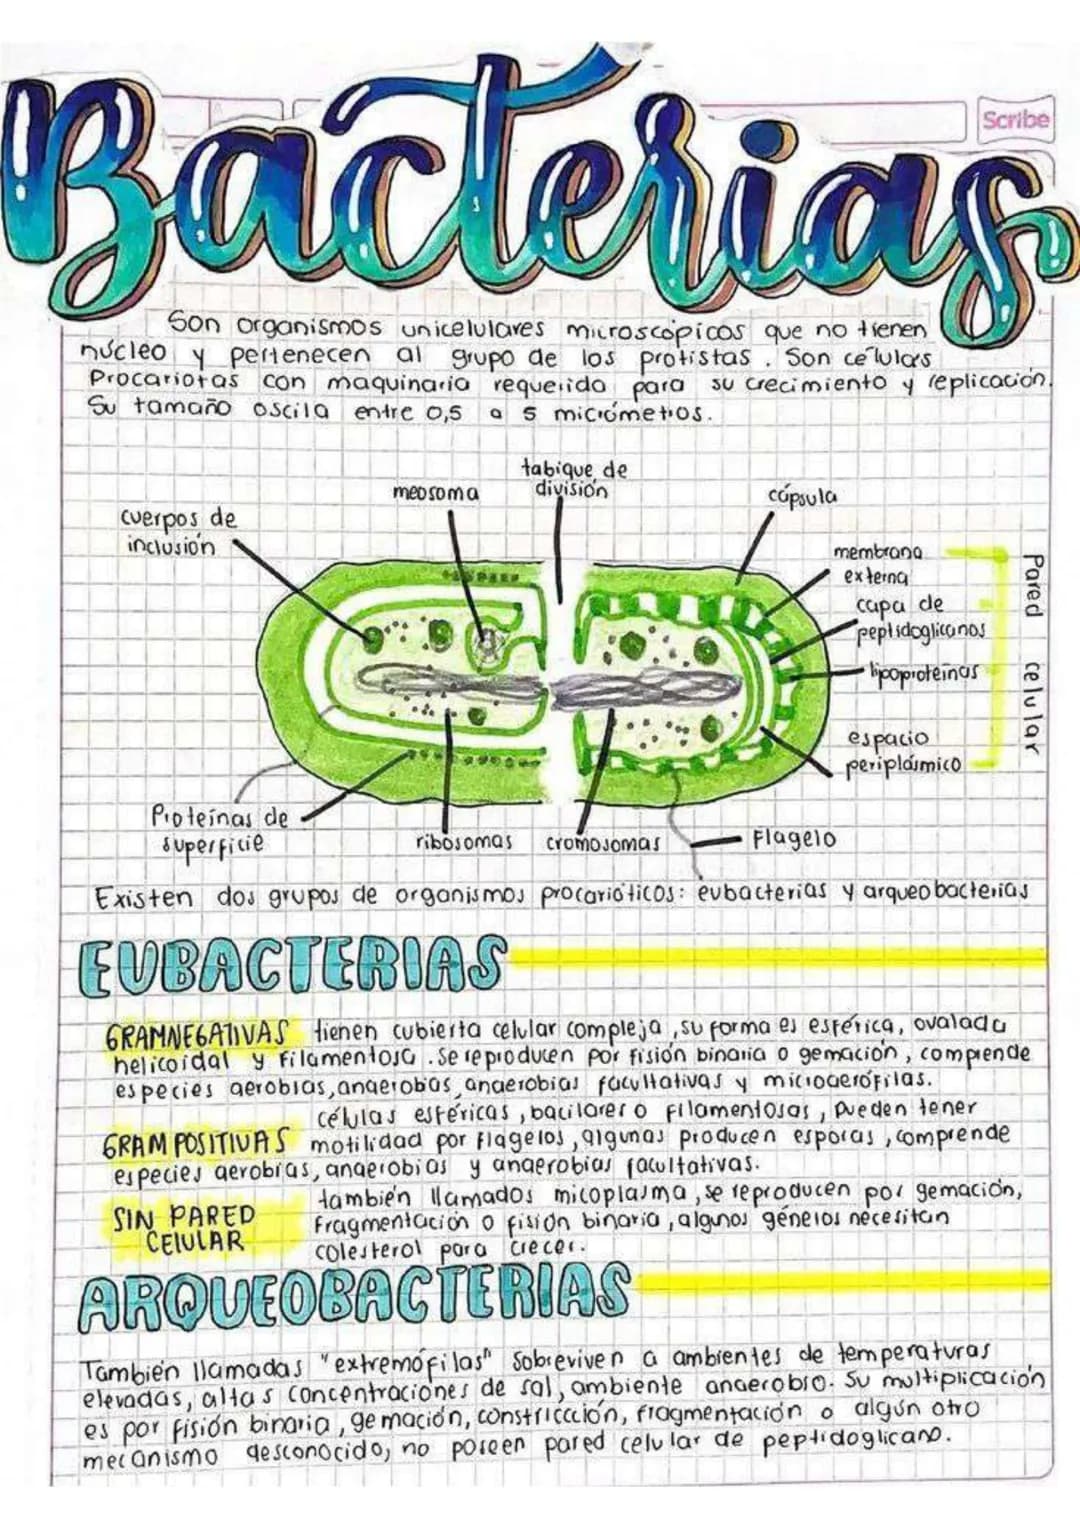 Bacterias
Scribe
Son organismos unicelulares microscópicos que no tienen
núcleo y pertenecen al grupo de los protistas. Son células
Procariotas con maquinaria requerida para su crecimiento y replicación.
Su tamaño oscila entre 0,5 a 5 micrómetros.
tabique de
división
meosoma
cápsula
cuerpos de
inclusión
membrana
externa
capa de
peptidoglicanos
lipoproteínas
espacio
periplásmico
Pared celular
Proteínas de
superficie
ribosomas
cromosomas
Flagelo
Existen dos grupos de organismos procarióticos: eubacterias y arqueobacterias
EUBACTERIAS
GRAMNEGATIVAS tienen cubierta celular compleja, su forma es esférica, ovalada
helicoidal y filamentosa. Se reproducen por fisión binaria o gemación, comprende
especies aerobias, anaerobas, anaerobias facultativas y microaerófilas.
células esféricas, bacilares o filamentosas, pueden tener
GRAM POSITIVAS motilidad por flagelos, algunas producen esporas, comprende
especies aerobias, anaerobias y anaerobias facultativas.
también llamados micoplasma, se reproducen por gemación,
SIN PARED fragmentación o fisión binaria, algunos géneros necesitan
CELULAR colesterol para crecer.
ARQUEOBACTERIAS
También llamadas "extremófilas" Sobreviven a ambientes de temperaturas
elevadas, altas concentraciones de sal, ambiente anaerobio. Su multiplicación
es por fisión binaria, gemación, constriccción, fragmentación o algún otro
mecanismo desconocido, no poseen pared celular de peptidoglicano.